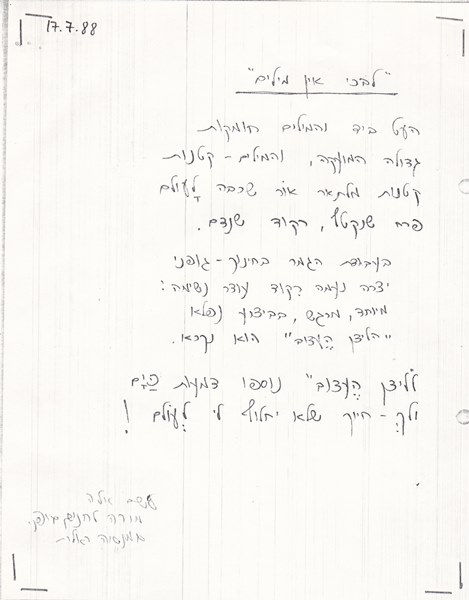 17.7.88
"לבכי אין מילים"
העט ביד והמילים חומקות
גדולה המועקה, והמילים - קטנות
קטנות מלתאר אור שכבה לָעוֹלם
פרח שנקטף, רקוד שנדם.
בעבודת הגמר בחינוך - גופני
יצרה נעמה רקוד עוצר נשימה:
מיוחד, מרגש, בביצוע נפלא
"הליצן הֶעצוב" הוא נקרא.
"לליצן הֶעצוב" נוספו דמעות כַּיָם
ולָךְ - חיוך שלא יחלוף לי לְעוֹלם!
אילה
מורה לחינוך גופני.
גימנסיה